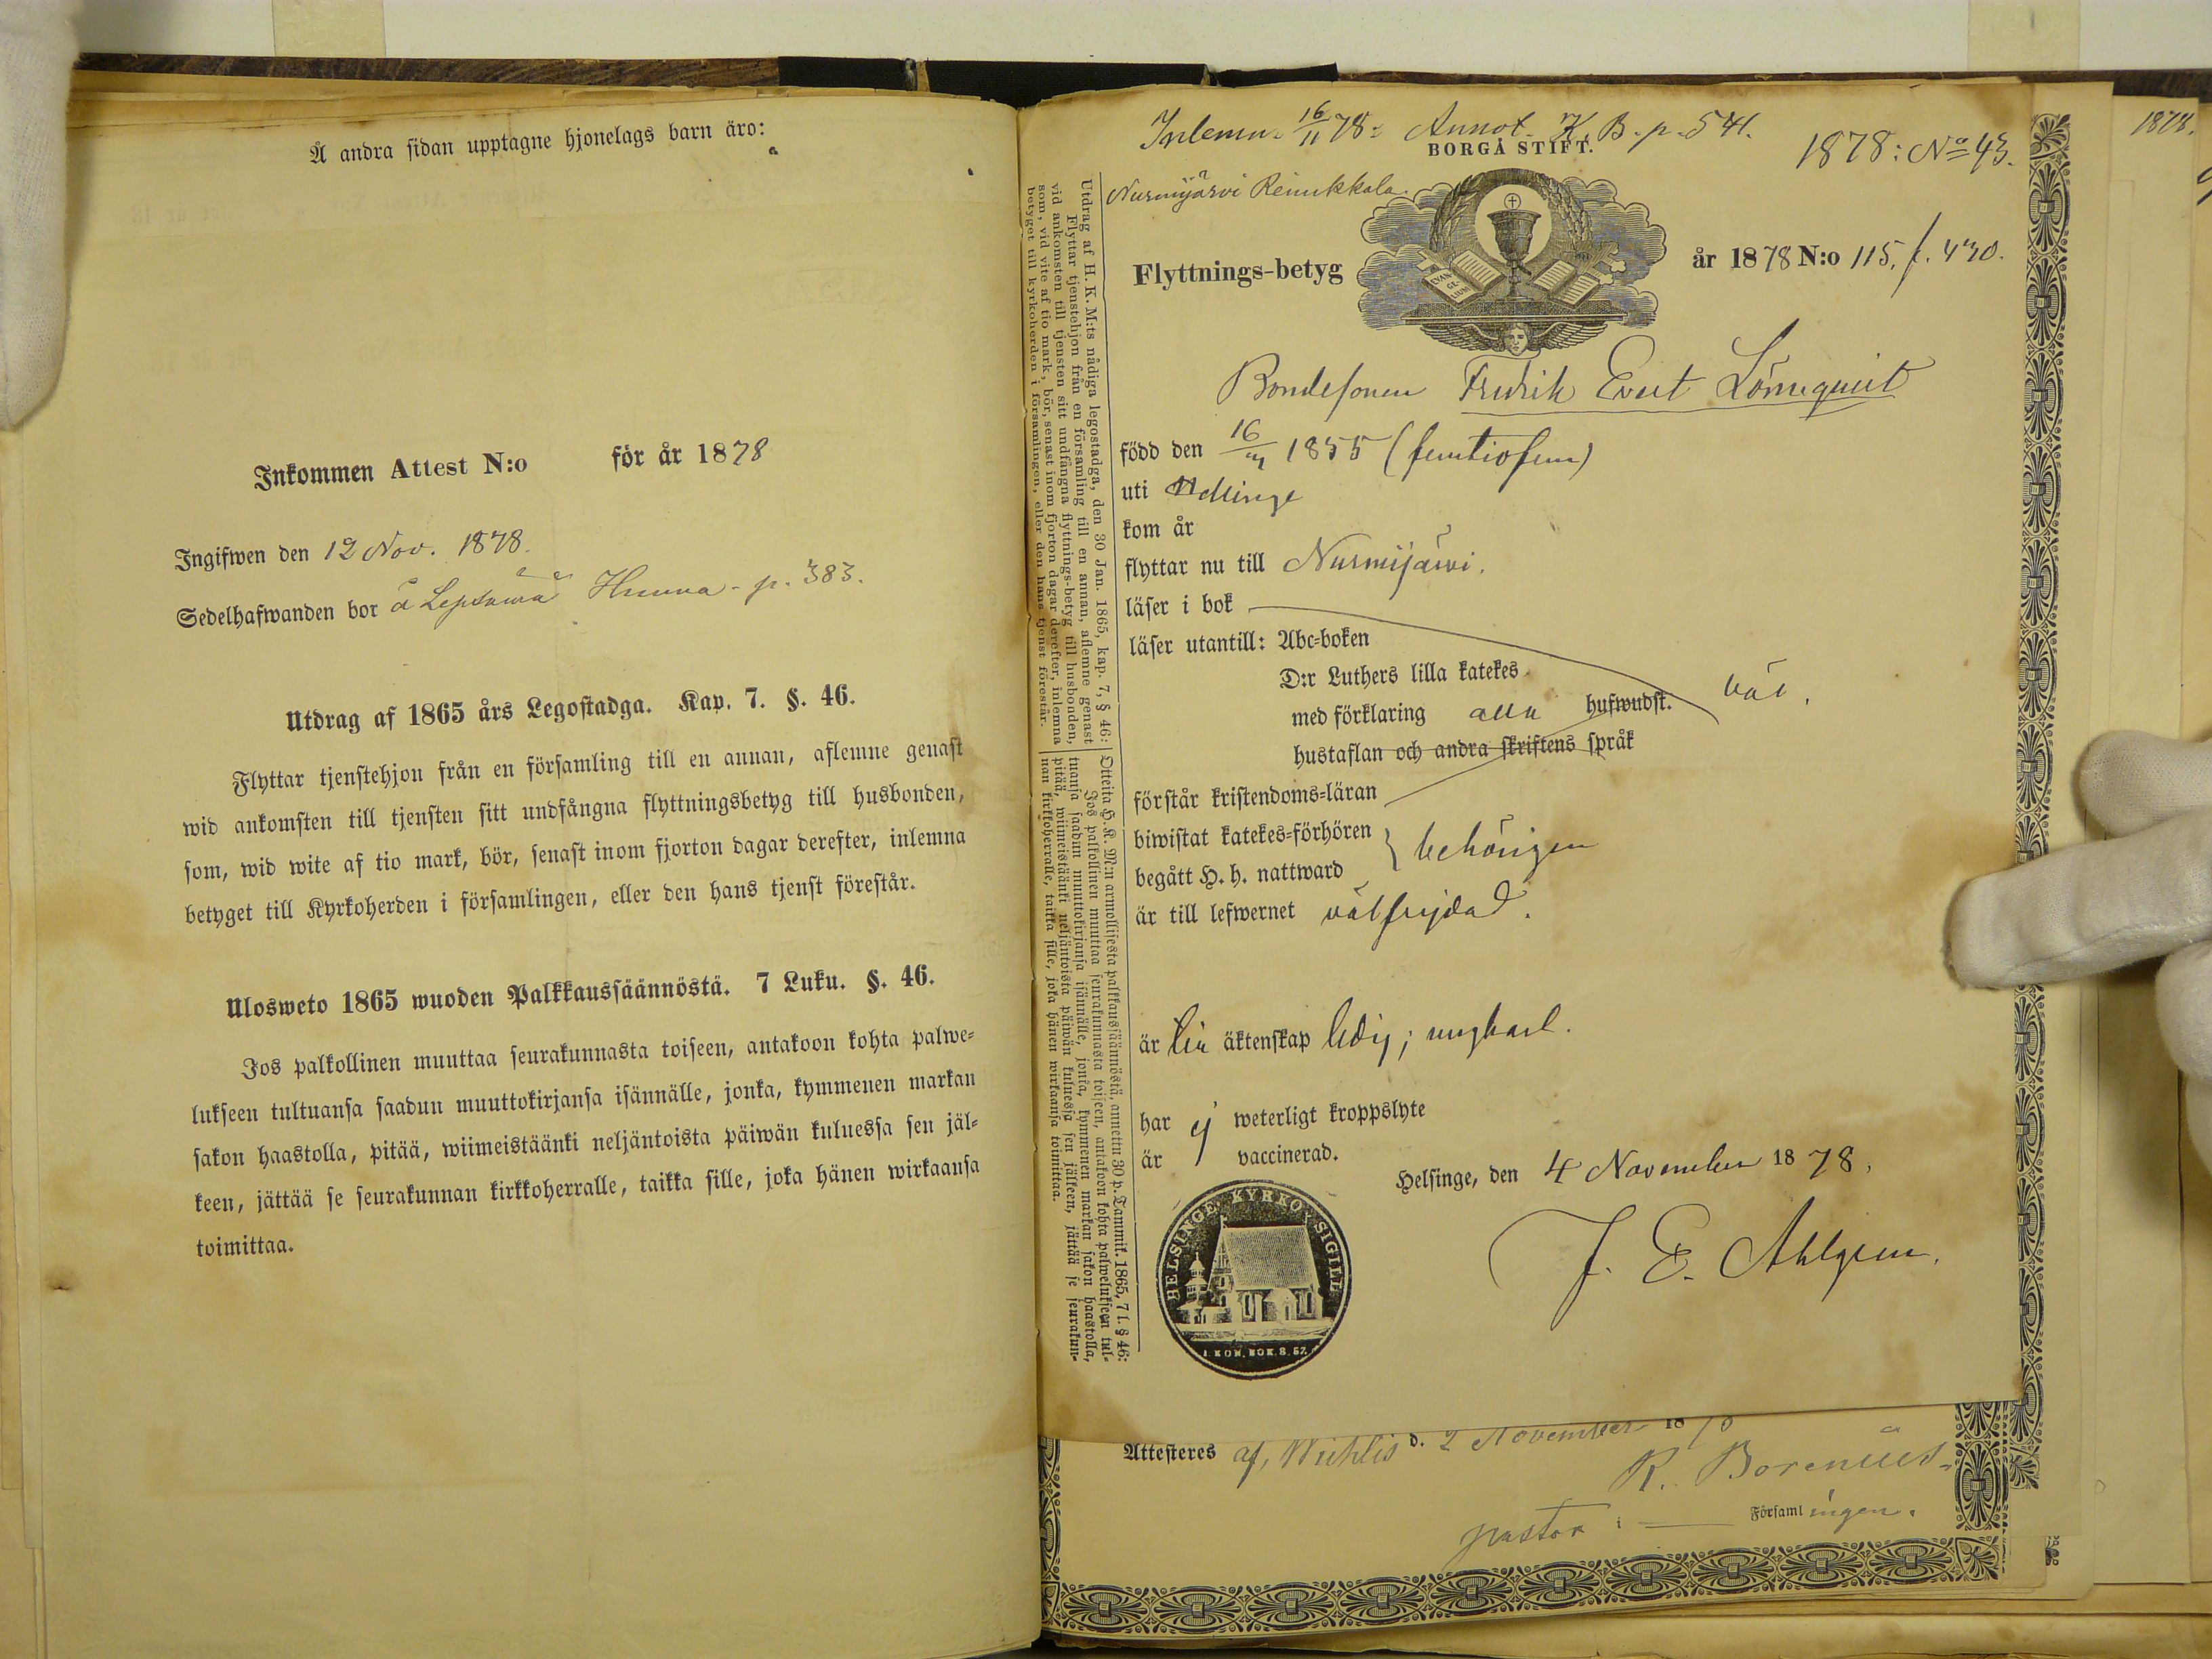 Å andra sidan upptagne hjonelags barn äro:
Inkommen Attest N:o för år 1878
Ingifwen den 12 Nov. 1878.
Sedelhafwanden bor å Lepsämä Huuna - p. 383.
Utdrag af 1865 års Legostadga. Kap. 7. §. 46.
Flyttar tjenstehjon från en församling till en annan, aflemne genast
wid ankomsten till tjensten sitt undfångna flyttningsbetyg till husbonden,
som, wid wite af tio mark, bör, senast inom fjorton dagar derefter, inlemna
betyget till Kyrkoherden i församlingen, eller den hans tjenst förestår.
Ulosweto 1865 wuoden Palkkaussäännöstä. 7 Luku. §. 46.
Jos palkollinen muuttaa seurakunnasta toiseen, antakoon kohta palwe-
lukseen tultuansa saadun muuttokirjansa isännälle, jonka, kymmenen markan
sakon haastolla, pitää, wiimeistäänki neljäntoista päiwän kuluessa sen jäl-
keen, jättää se seurakunnan kirkkoherralle, taikka sille, joka hänen wirkaansa
toimittaa.
Inlemn. 16/11 78. Annot. K. B. p. 541.
BORGÅ STIFT.
1878: No 43.
Nurmijärvi
Flyttnings-betyg
EVAN GE LIUM
år 1878 N:o 115. f. 430.
Bondesonen Fredrik Evert Lönnquist
född den 16/ 1855 (femtiofem)
uti
kom år
flyttar nu till Nurmijärvi.
läser i bok
läser utantill: Abc-boken
D:r Luthers lilla katekes
med förklaring alla hufwudst. väl.
hustaflan och andra skriftens språk
förstår kristendoms-läran
biwistat katekes-förhören
begått H. h. nattward } behörigen
är till lefwernet välfrejdad.
är till äktenskap ledig; ungkarl.
har ej weterligt kroppslyte
är vaccinerad.
Helsinge, den 4 November 1878.
J. E. Ahlgren.
HELSINGE KYRKO SIGILL
1. KON. BOK. 8. 57.
Utdrag af H. K. M:ts nådiga legostadga, den 30 Jan. 1865, kap. 7, § 46:
Flyttar tjenstehjon från en församling till en annan, aflemne genast
vid ankomsten till tjensten sitt undfångna flyttnings-betyg till husbonden,
som, vid vite af tio mark, bör, senast inom fjorton dagar derefter, inlemna
betyget till kyrkoherden i församlingen, eller den hans tjenst förestår.
Otteita H. K. M:n armollisesta palkkaussäännöstä, annettu 30 p. Tammik. 1865, 7 l. § 46:
Jos palkollinen muuttaa seurakunnasta toiseen, antakoon kohta palwelukseen tul-
tuansa saadun muuttokirjansa isännälle, jonka, kymmenen markan sakon haastolla,
pitää, wiimeistäänki neljäntoista päiwän kuluessa sen jälkeen, jättää se seurakun-
nan kirkkoherralle, taikka sille, joka hänen wirkaansa toimittaa.
Attesteres af, Wichtis d. 2 November 1878
R. Borenius.
pastor i Församlingen.
1878.